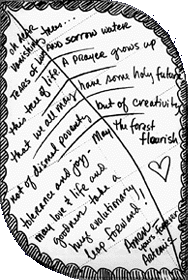 oh dear
Vanishing trees....
roles of wood
this tree of life
that we all may
not of dismal poverty
tolerance and joy-
may love & life and
goodness take a
huge evolutionary
leap forward!
and sorrow water
A prayer grows up
have some holy future
but of creativity
May the forest
flourish
Your